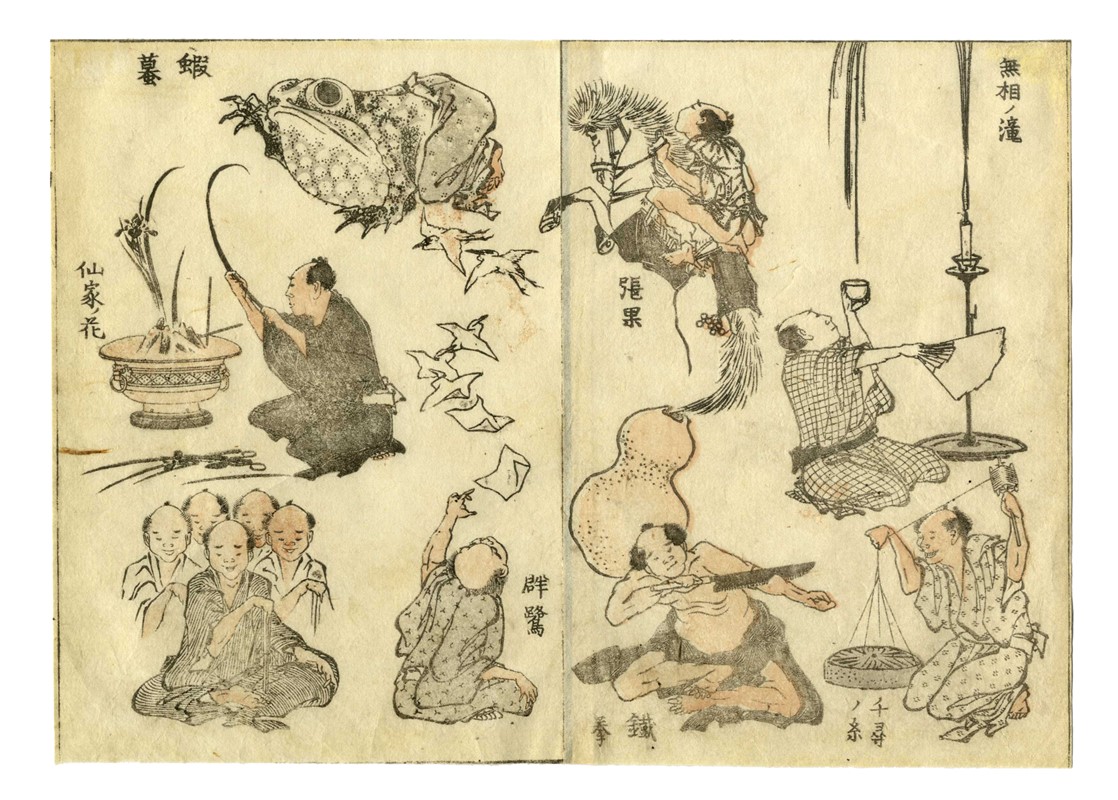 無相ノ瀧
張果
千尋
ノ糸
鐵拳
蝦蟇
仙家ノ花
群鷺